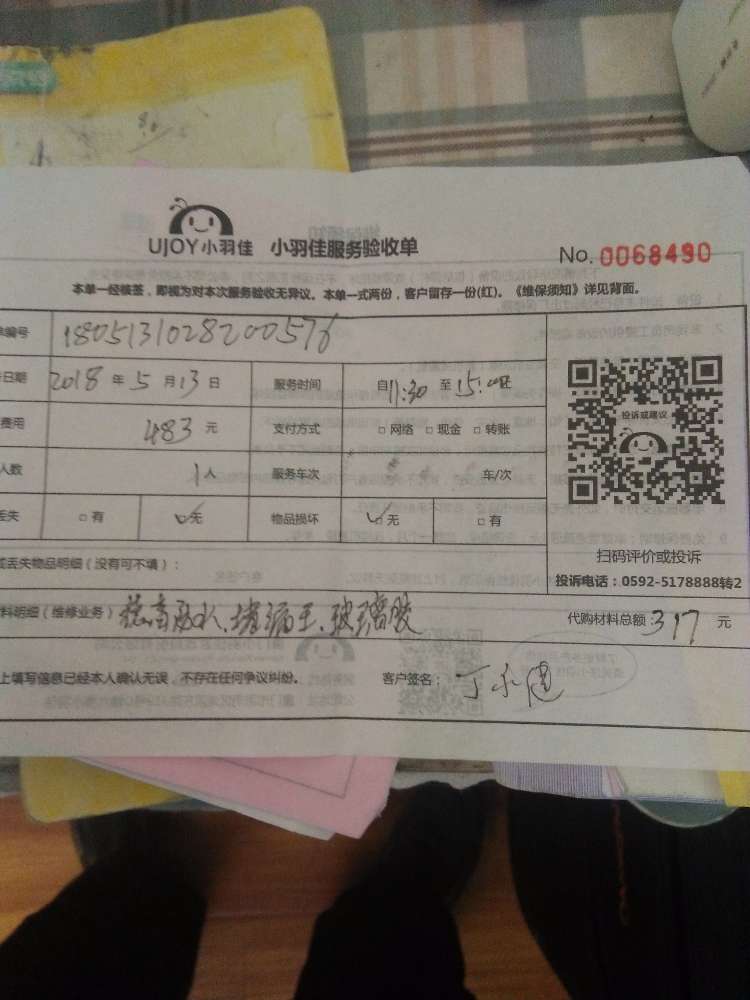 UJOY小羽佳 小羽佳服务验收单 No. 0068490
本单一经核签，即视为对本次服务验收无异议。本单一式两份，客户留存一份(红)。《维保须知》详见背面。
单编号 1805131028200576
日期 2018 年 5 月 13 日 服务时间 自 11:30 至 15:00 止
费用 483 元 支付方式 □ 网络 □ 现金 □ 转账
人数 1 人 服务车次 车/次
丢失 □ 有 □ 无 物品损坏 □ 无 □ 有
投诉或建议
扫码评价或投诉
投诉电话：0592-5178888转2
或丢失物品明细（没有可填）：
料明细（维修业务） 堵漏王、玻璃胶 代购材料总额：317 元
上填写信息已经本人确认无误，不存在任何争议纠纷。 客户签名：丁永建